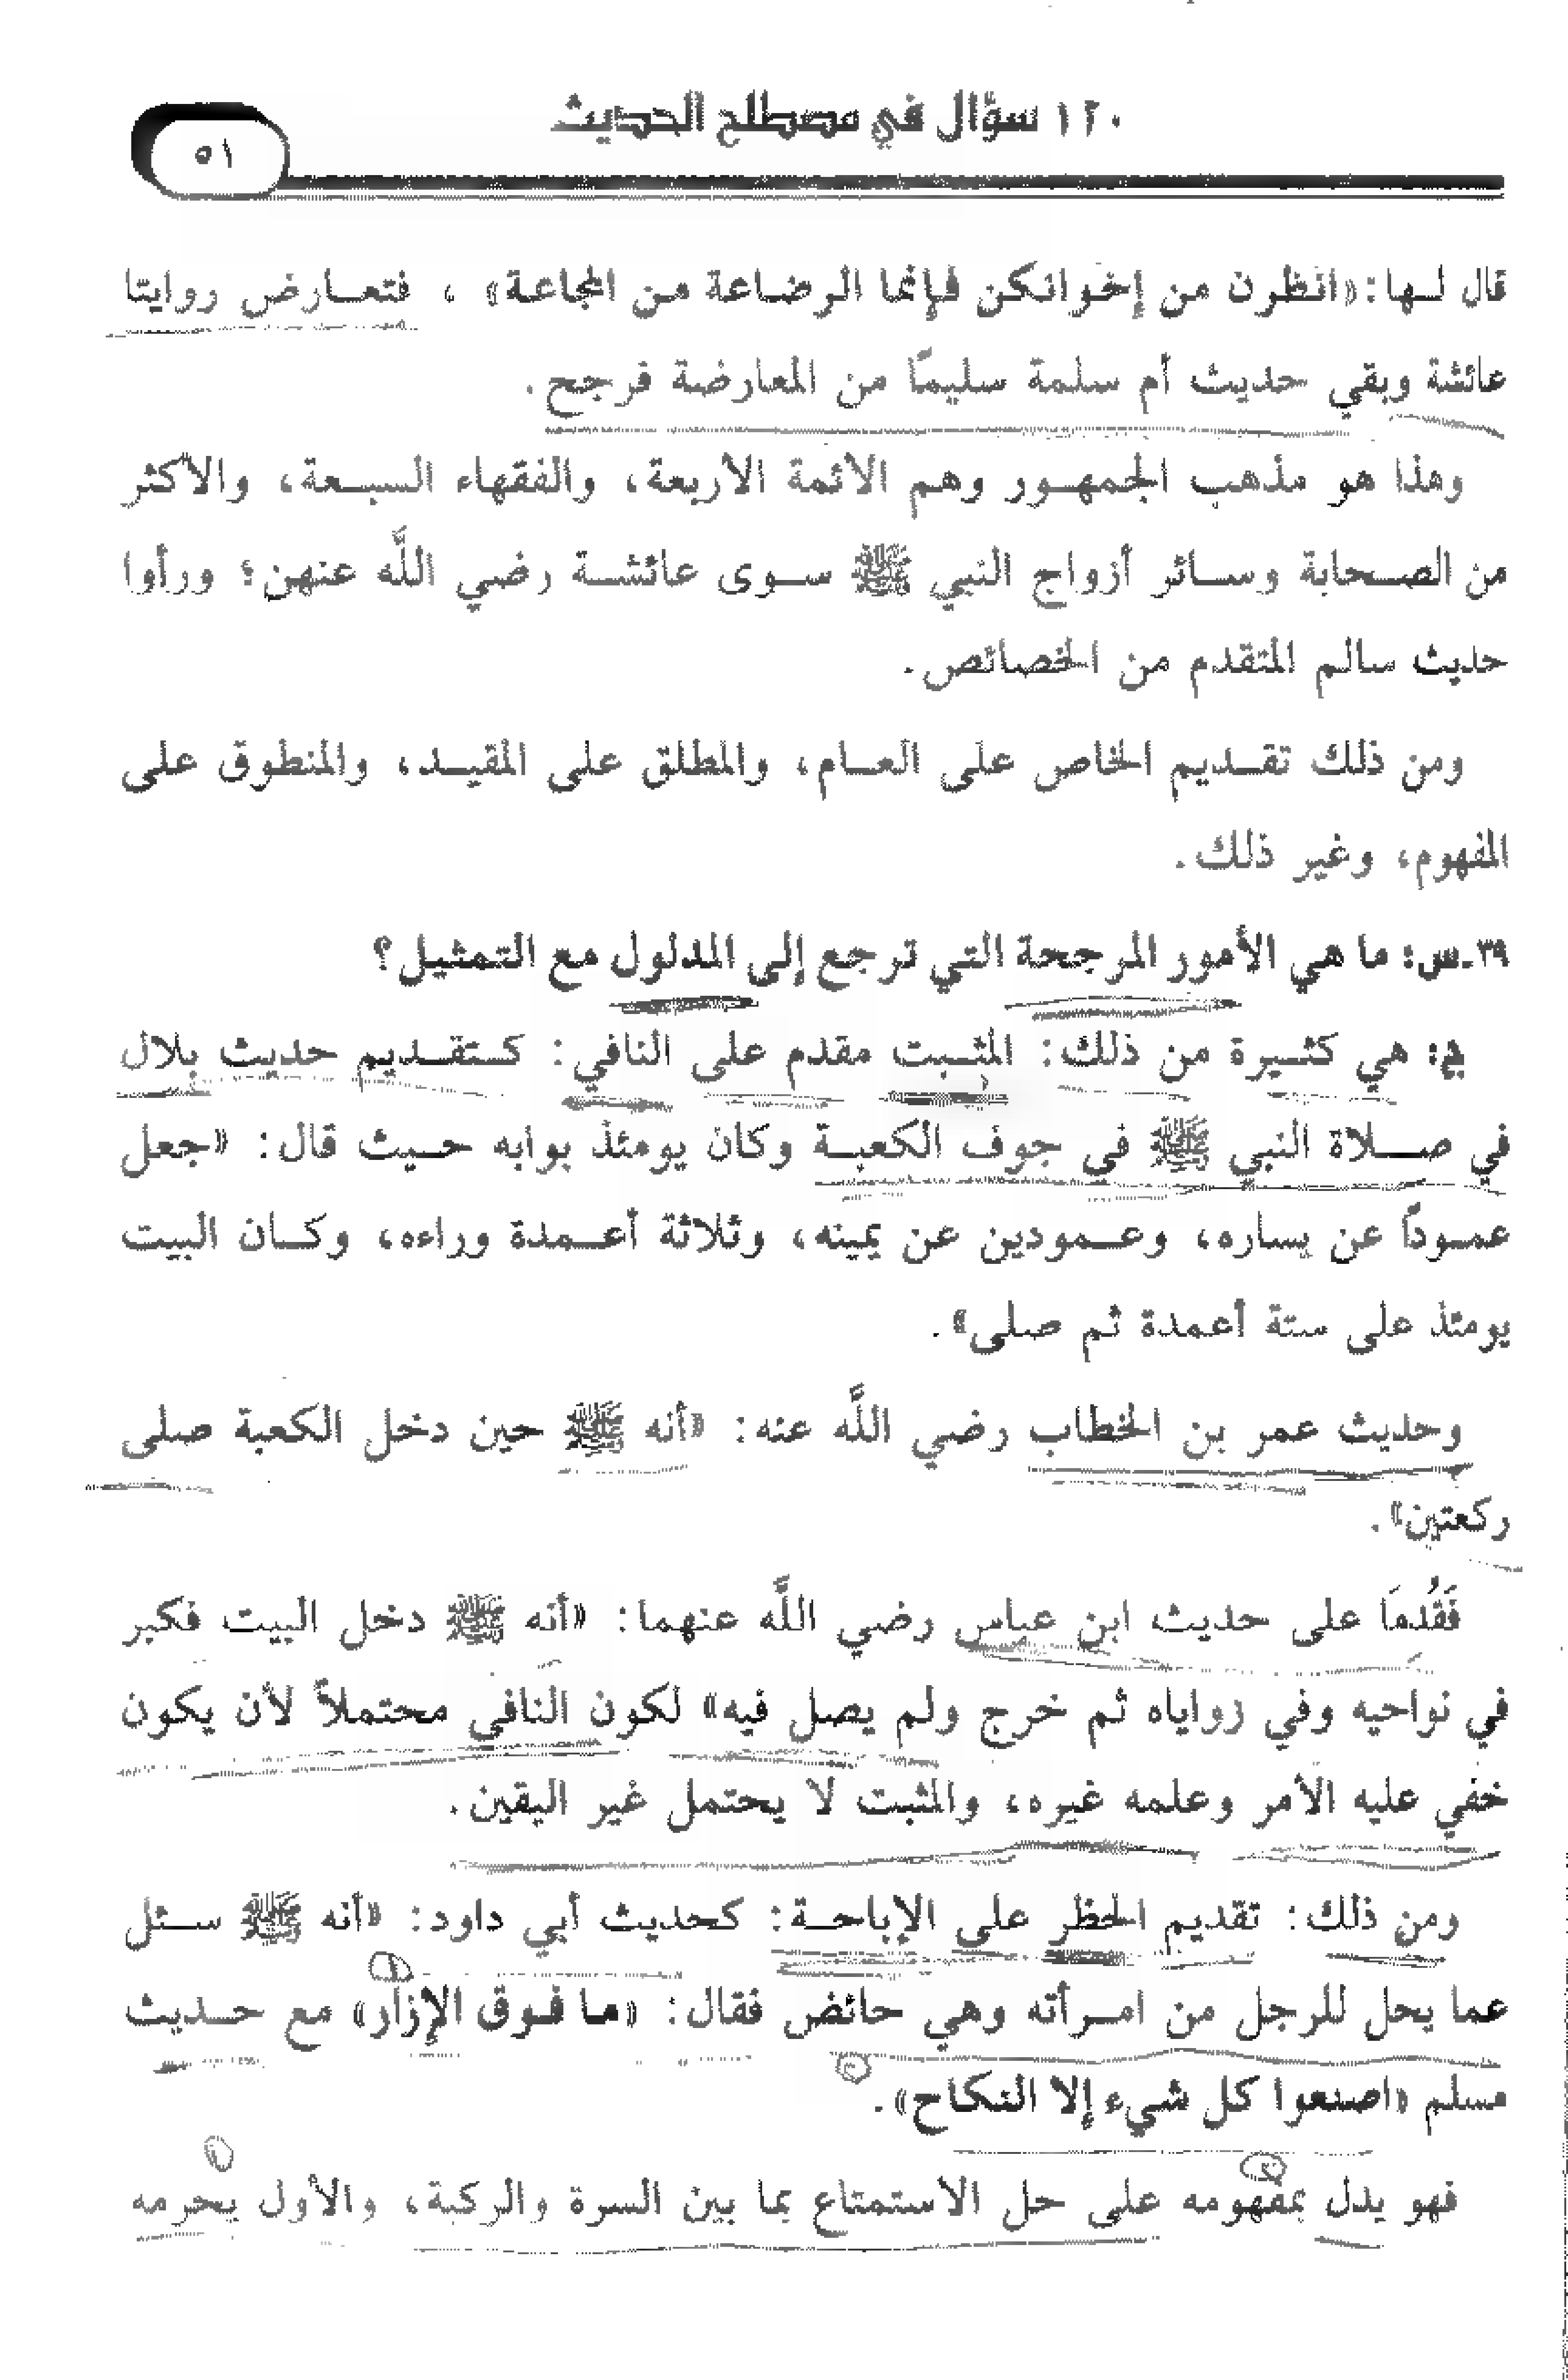 ١٢٠ سؤال في مصطلح الحديث
٥١
قال لها: «انظرن من إخوانكن فإنما الرضاعة من المجاعة» ، فتعارض روايتا
عائشة وبقي حديث أم سلمة سليمًا من المعارضة فرجح.
وهذا هو مذهب الجمهور وهم الأئمة الأربعة، والفقهاء السبعة، والأكثر
من الصحابة وسائر أزواج النبي ﷺ سوى عائشة رضي اللَّه عنهن؛ ورأوا
حديث سالم المتقدم من الخصائص.
ومن ذلك تقديم الخاص على العام، والمطلق على المقيد، والمنطوق على
المفهوم، وغير ذلك.
٣٩ـس: ما هي الأمور المرجحة التي ترجع إلى المدلول مع التمثيل؟
ج: هي كثيرة من ذلك: المثبت مقدم على النافي: كتقديم حديث بلال
في صلاة النبي ﷺ في جوف الكعبة وكان يومئذ بوابه حيث قال: «جعل
عمودًا عن يساره، وعمودين عن يمينه، وثلاثة أعمدة وراءه، وكان البيت
يومئذ على ستة أعمدة ثم صلى».
وحديث عمر بن الخطاب رضي اللَّه عنه: «أنه ﷺ حين دخل الكعبة صلى
ركعتين».
فَقُدمَا على حديث ابن عباس رضي اللَّه عنهما: «أنه ﷺ دخل البيت فكبر
في نواحيه وفي زواياه ثم خرج ولم يصل فيه» لكون النافي محتملاً لأن يكون
خفي عليه الأمر وعلمه غيره، والمثبت لا يحتمل غير اليقين.
ومن ذلك: تقديم الحظر على الإباحة: كحديث أبي داود: «أنه ﷺ سئل
عما يحل للرجل من امرأته وهي حائض فقال: «ما فوق الإزار» مع حديث
مسلم «اصنعوا كل شيء إلا النكاح».
فهو يدل بمفهومه على حل الاستمتاع بما بين السرة والركبة، والأول يحرمه